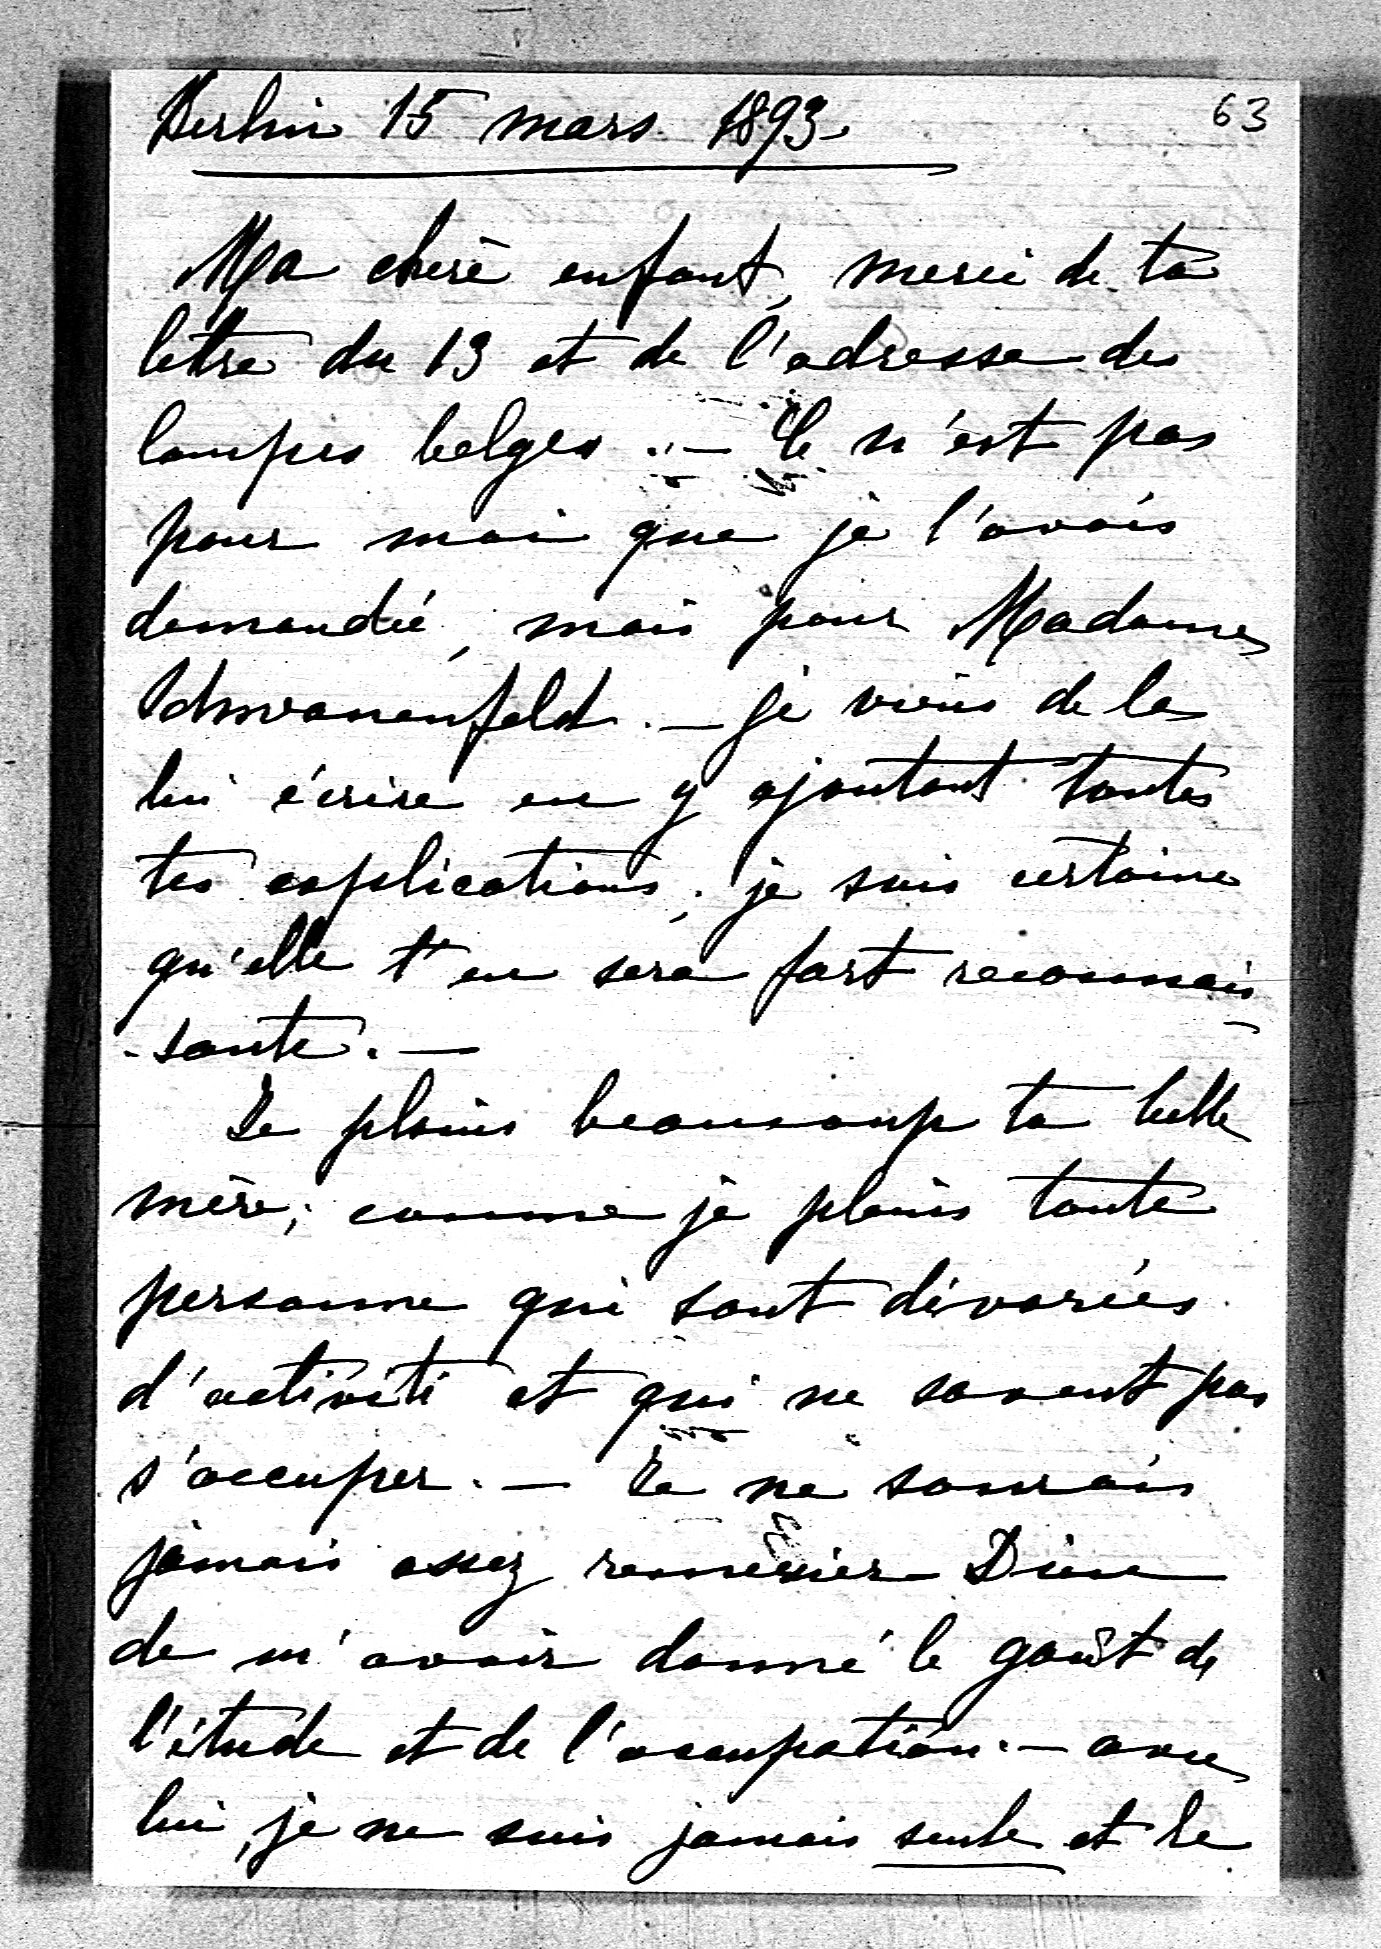 63
Berlin 15 mars 1893.
Ma chère enfant, merci de ta
lettre du 13 et de l'adresse des
lampes belges. — Ce n'est pas
pour moi que je l'avais
demandée, mais pour Madame
Schwanenfeld. — je viens de la
lui écrire en y ajoutant toutes
tes explications; je suis certaine
qu'elle t'en sera fort reconnais-
-sante. —
Je plains beaucoup ta belle
mère; comme je plains toute
personne qui sont dévorées
d'activité et qui ne savent pas
s'occuper. — Je ne saurais
jamais assez remercier Dieu
de m'avoir donné le goût de
l'étude et de l'occupation. — avec
lui, je ne suis jamais seule et le